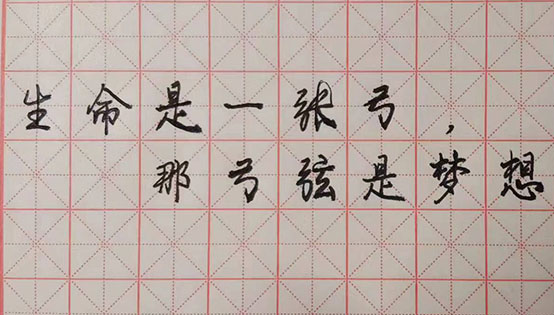 生命是一张弓，
那弓弦是梦想